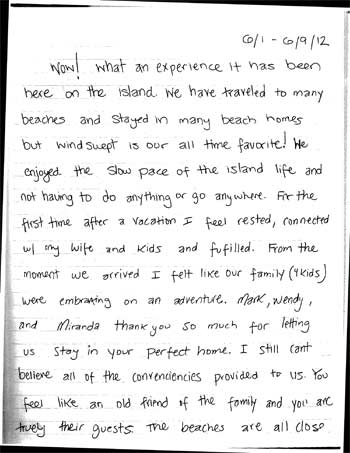 6/1 - 6/9/12
Wow! What an experience it has been
here on the island. We have traveled to many
beaches and stayed in many beach homes
but windswept is our all time favorite! We
enjoyed the slow pace of the island life and
not having to do anything or go anywhere. For the
first time after a vacation I feel rested, connected
w/ my wife and kids and fufilled. From the
moment we arrived I felt like our family (4 kids)
were embraking on an adventure. Mark, Wendy,
and Miranda thank you so much for letting
us stay in your perfect home. I still cant
believe all of the conveniencies provided to us. You
feel like an old friend of the family and you are
truely their guests. The beaches are all close